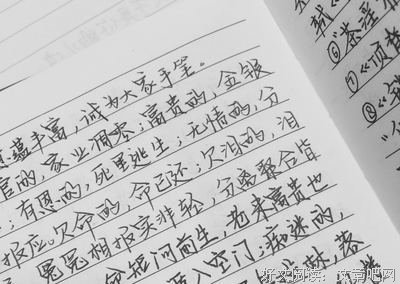 蕴丰富,诚为大家手笔。
官的,家业凋零;富贵的,金银
;有恩的,死里逃生;无情的,分
报应。欠命的,命已还;欠泪的,泪
冤冤相报实非轻,分离聚合皆
命短问前生,老来富贵也
入空门;痴迷的,
林,落
⑥《荼
⑦《顶
⑧《
好文阅读:文章吧网